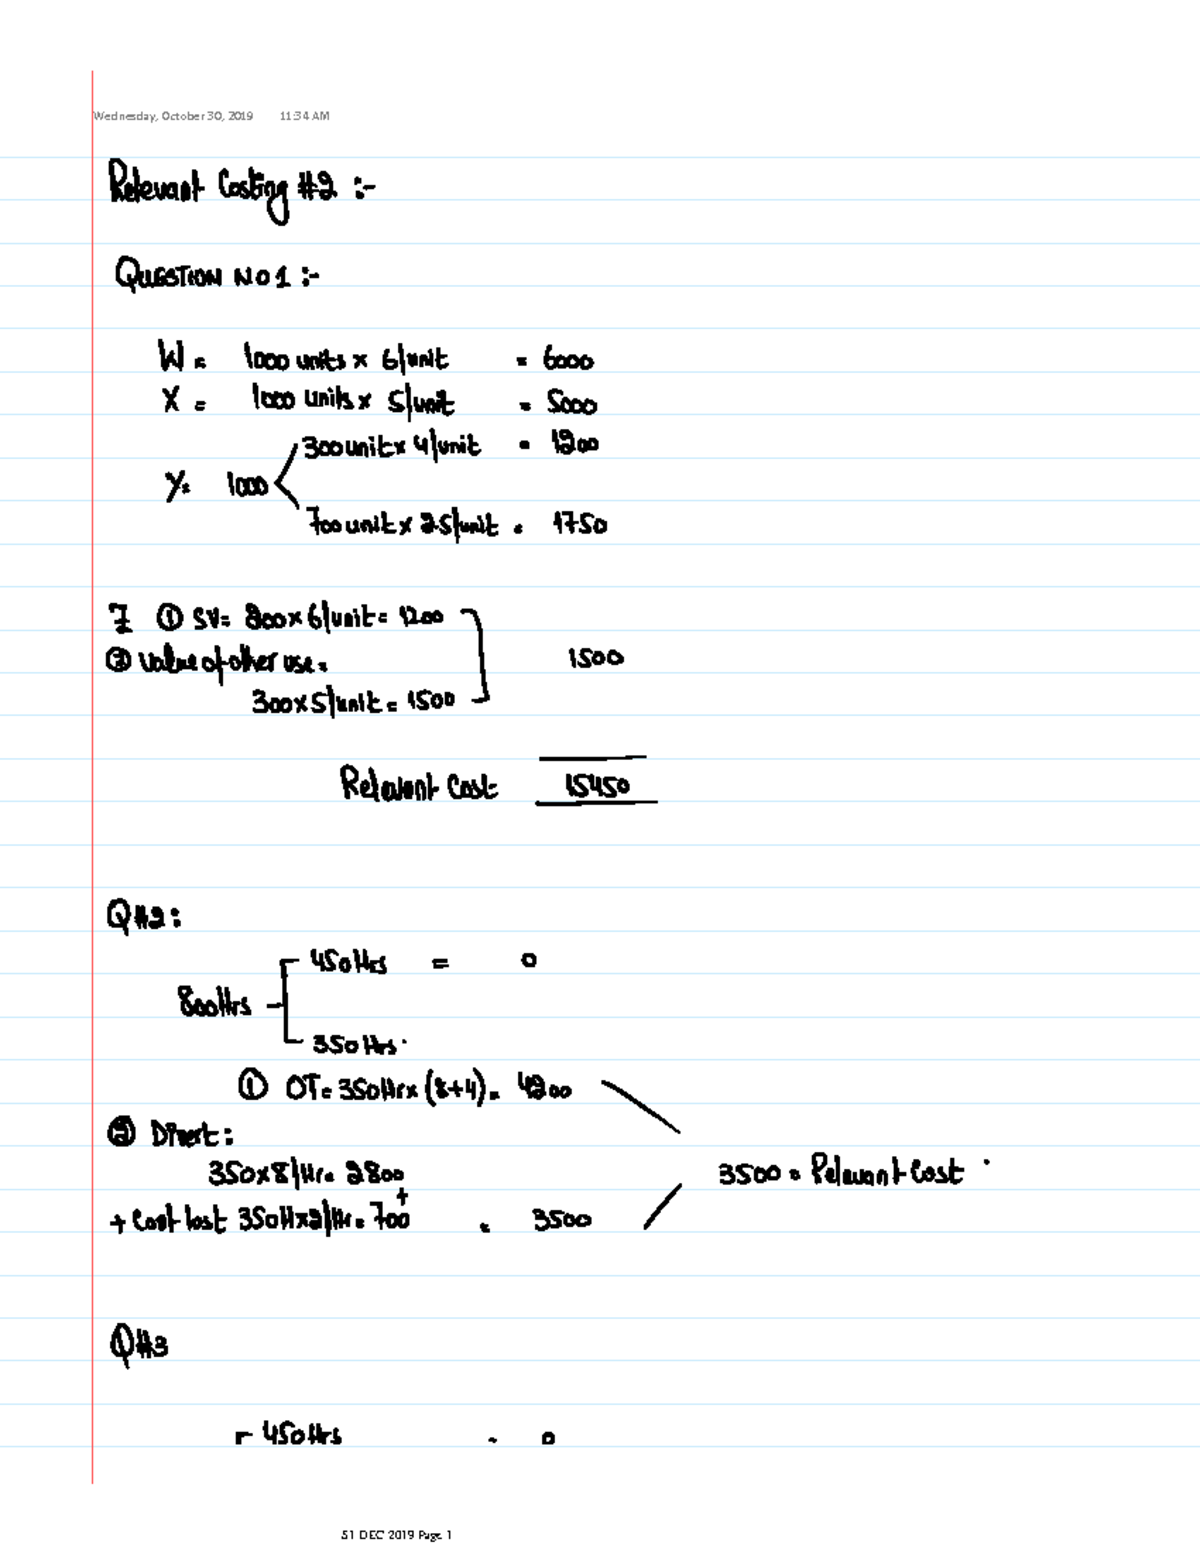 Wednesday, October 30, 2019 11:34 AM
Relevant Costing #2 :-
QUESTION NO 1 :-
W = 1000 units x 6/unit = 6000
X = 1000 units x 5/unit = 5000
300 unit x 4/unit = 1200
Y = 1000
700 unit x 2.5/unit = 1750
Z ① SV = 200 x 6/unit = 1200
② Value of other use =
1500
300 x 5/unit = 1500
Relevant Cost 15450
Q#2:
450 Hrs = 0
800 Hrs
350 Hrs.
① OT = 350 Hr x (8+4) = 4200
② Divert:
350 x 8/Hr = 2800
3500 = Relevant Cost
+
+ Cont lost 350 H x 2/Hr = 700 = 3500
Q#3
450 Hrs - 0
S1 DEC 2019 Page 1